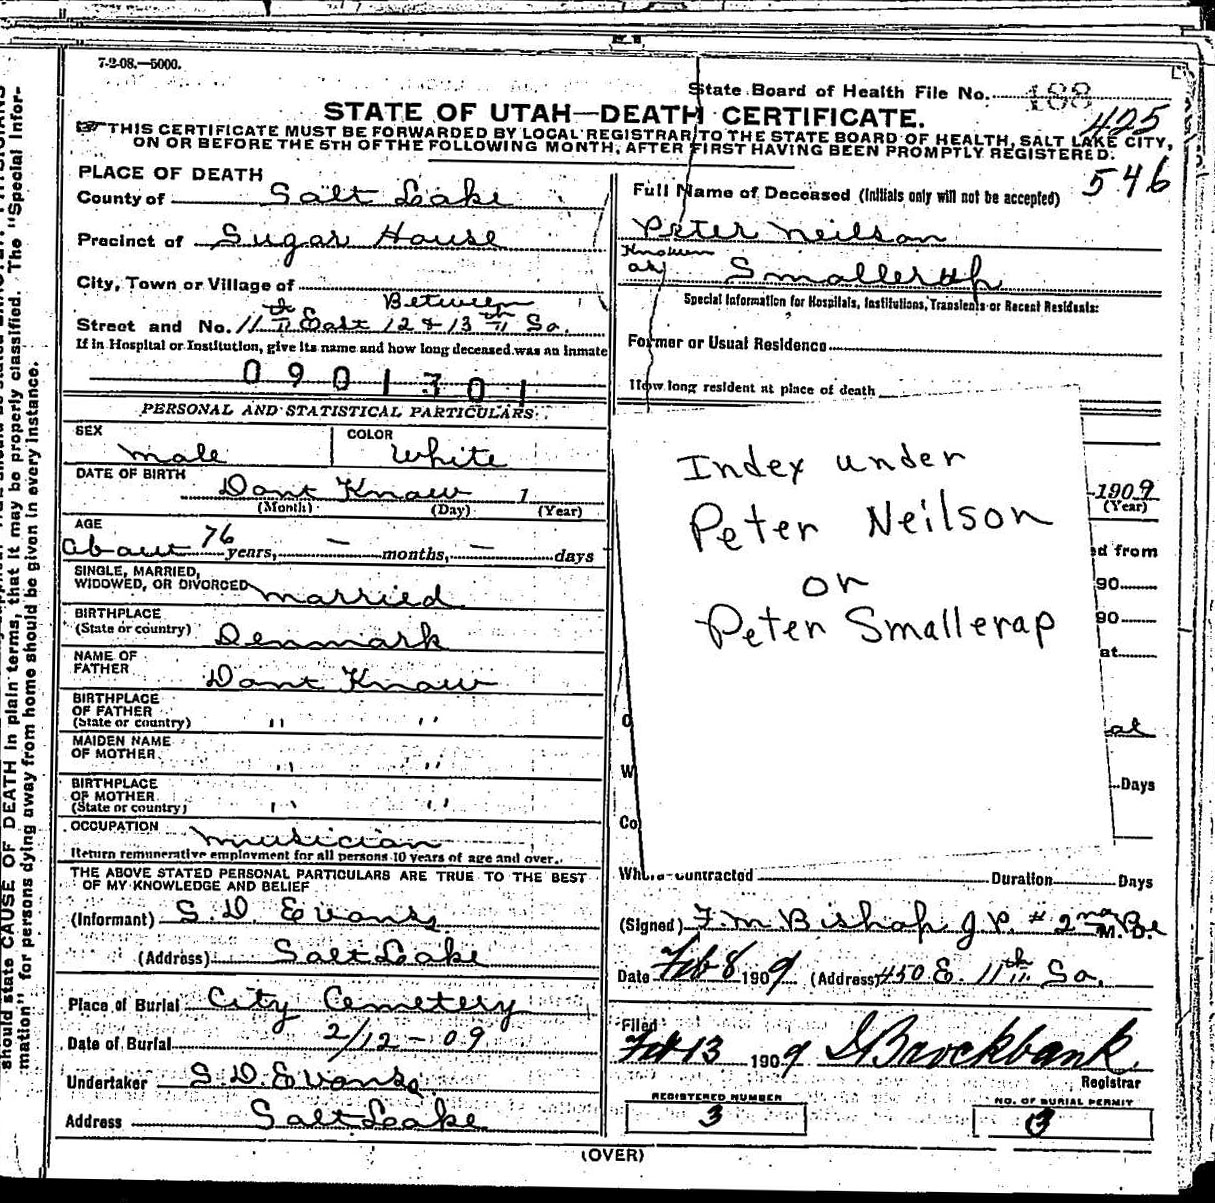 7-2-08.—5000.
State Board of Health File No. 188
425
STATE OF UTAH—DEATH CERTIFICATE.
THIS CERTIFICATE MUST BE FORWARDED BY LOCAL REGISTRAR TO THE STATE BOARD OF HEALTH, SALT LAKE CITY,
ON OR BEFORE THE 5TH OF THE FOLLOWING MONTH, AFTER FIRST HAVING BEEN PROMPTLY REGISTERED.
546
PLACE OF DEATH
County of Salt Lake
Precinct of Sugar House
City, Town or Village of
Between
Street and No. 11th East 12 & 13th So.
If in Hospital or Institution, give its name and how long deceased was an inmate
0901301
PERSONAL AND STATISTICAL PARTICULARS
SEX
male
COLOR
White
DATE OF BIRTH
Dont Know 1
(Month) (Day) (Year)
AGE
about 76 years, — months, — days
SINGLE, MARRIED,
WIDOWED, OR DIVORCED married
BIRTHPLACE
(State or country) Denmark
NAME OF
FATHER Dont Know
BIRTHPLACE
OF FATHER
(State or country) " "
MAIDEN NAME
OF MOTHER " "
BIRTHPLACE
OF MOTHER
(State or country) " "
OCCUPATION musician
Return remunerative employment for all persons 10 years of age and over.
THE ABOVE STATED PERSONAL PARTICULARS ARE TRUE TO THE BEST
OF MY KNOWLEDGE AND BELIEF
(Informant) S. D. Evans
(Address) Salt Lake
Place of Burial City Cemetery
Date of Burial 2/12-09
Undertaker S. D. Evans
Address Salt Lake
Full Name of Deceased (Initials only will not be accepted)
Peter Neilson
Known
as Smallerap
Special Information for Hospitals, Institutions, Transients or Recent Residents:
Former or Usual Residence
How long resident at place of death
Index under
Peter Neilson
or
Peter Smallerap
1909
(Year)
ed from
90
90
at
al
Days
Co
Where Contracted Duration Days
(Signed) F. M. Bishop J. P. # 2nd M. D.
Date Feb 8 1909 (Address) 450 E. 11th So.
Filed
Feb 13 1909 Brockbank
Registrar
REGISTERED NUMBER
3
NO. OF BURIAL PERMIT
3
(OVER)
should state CAUSE OF DEATH in plain terms, that it may be properly classified. The "Special Infor-
mation" for persons dying away from home should be given in every instance.